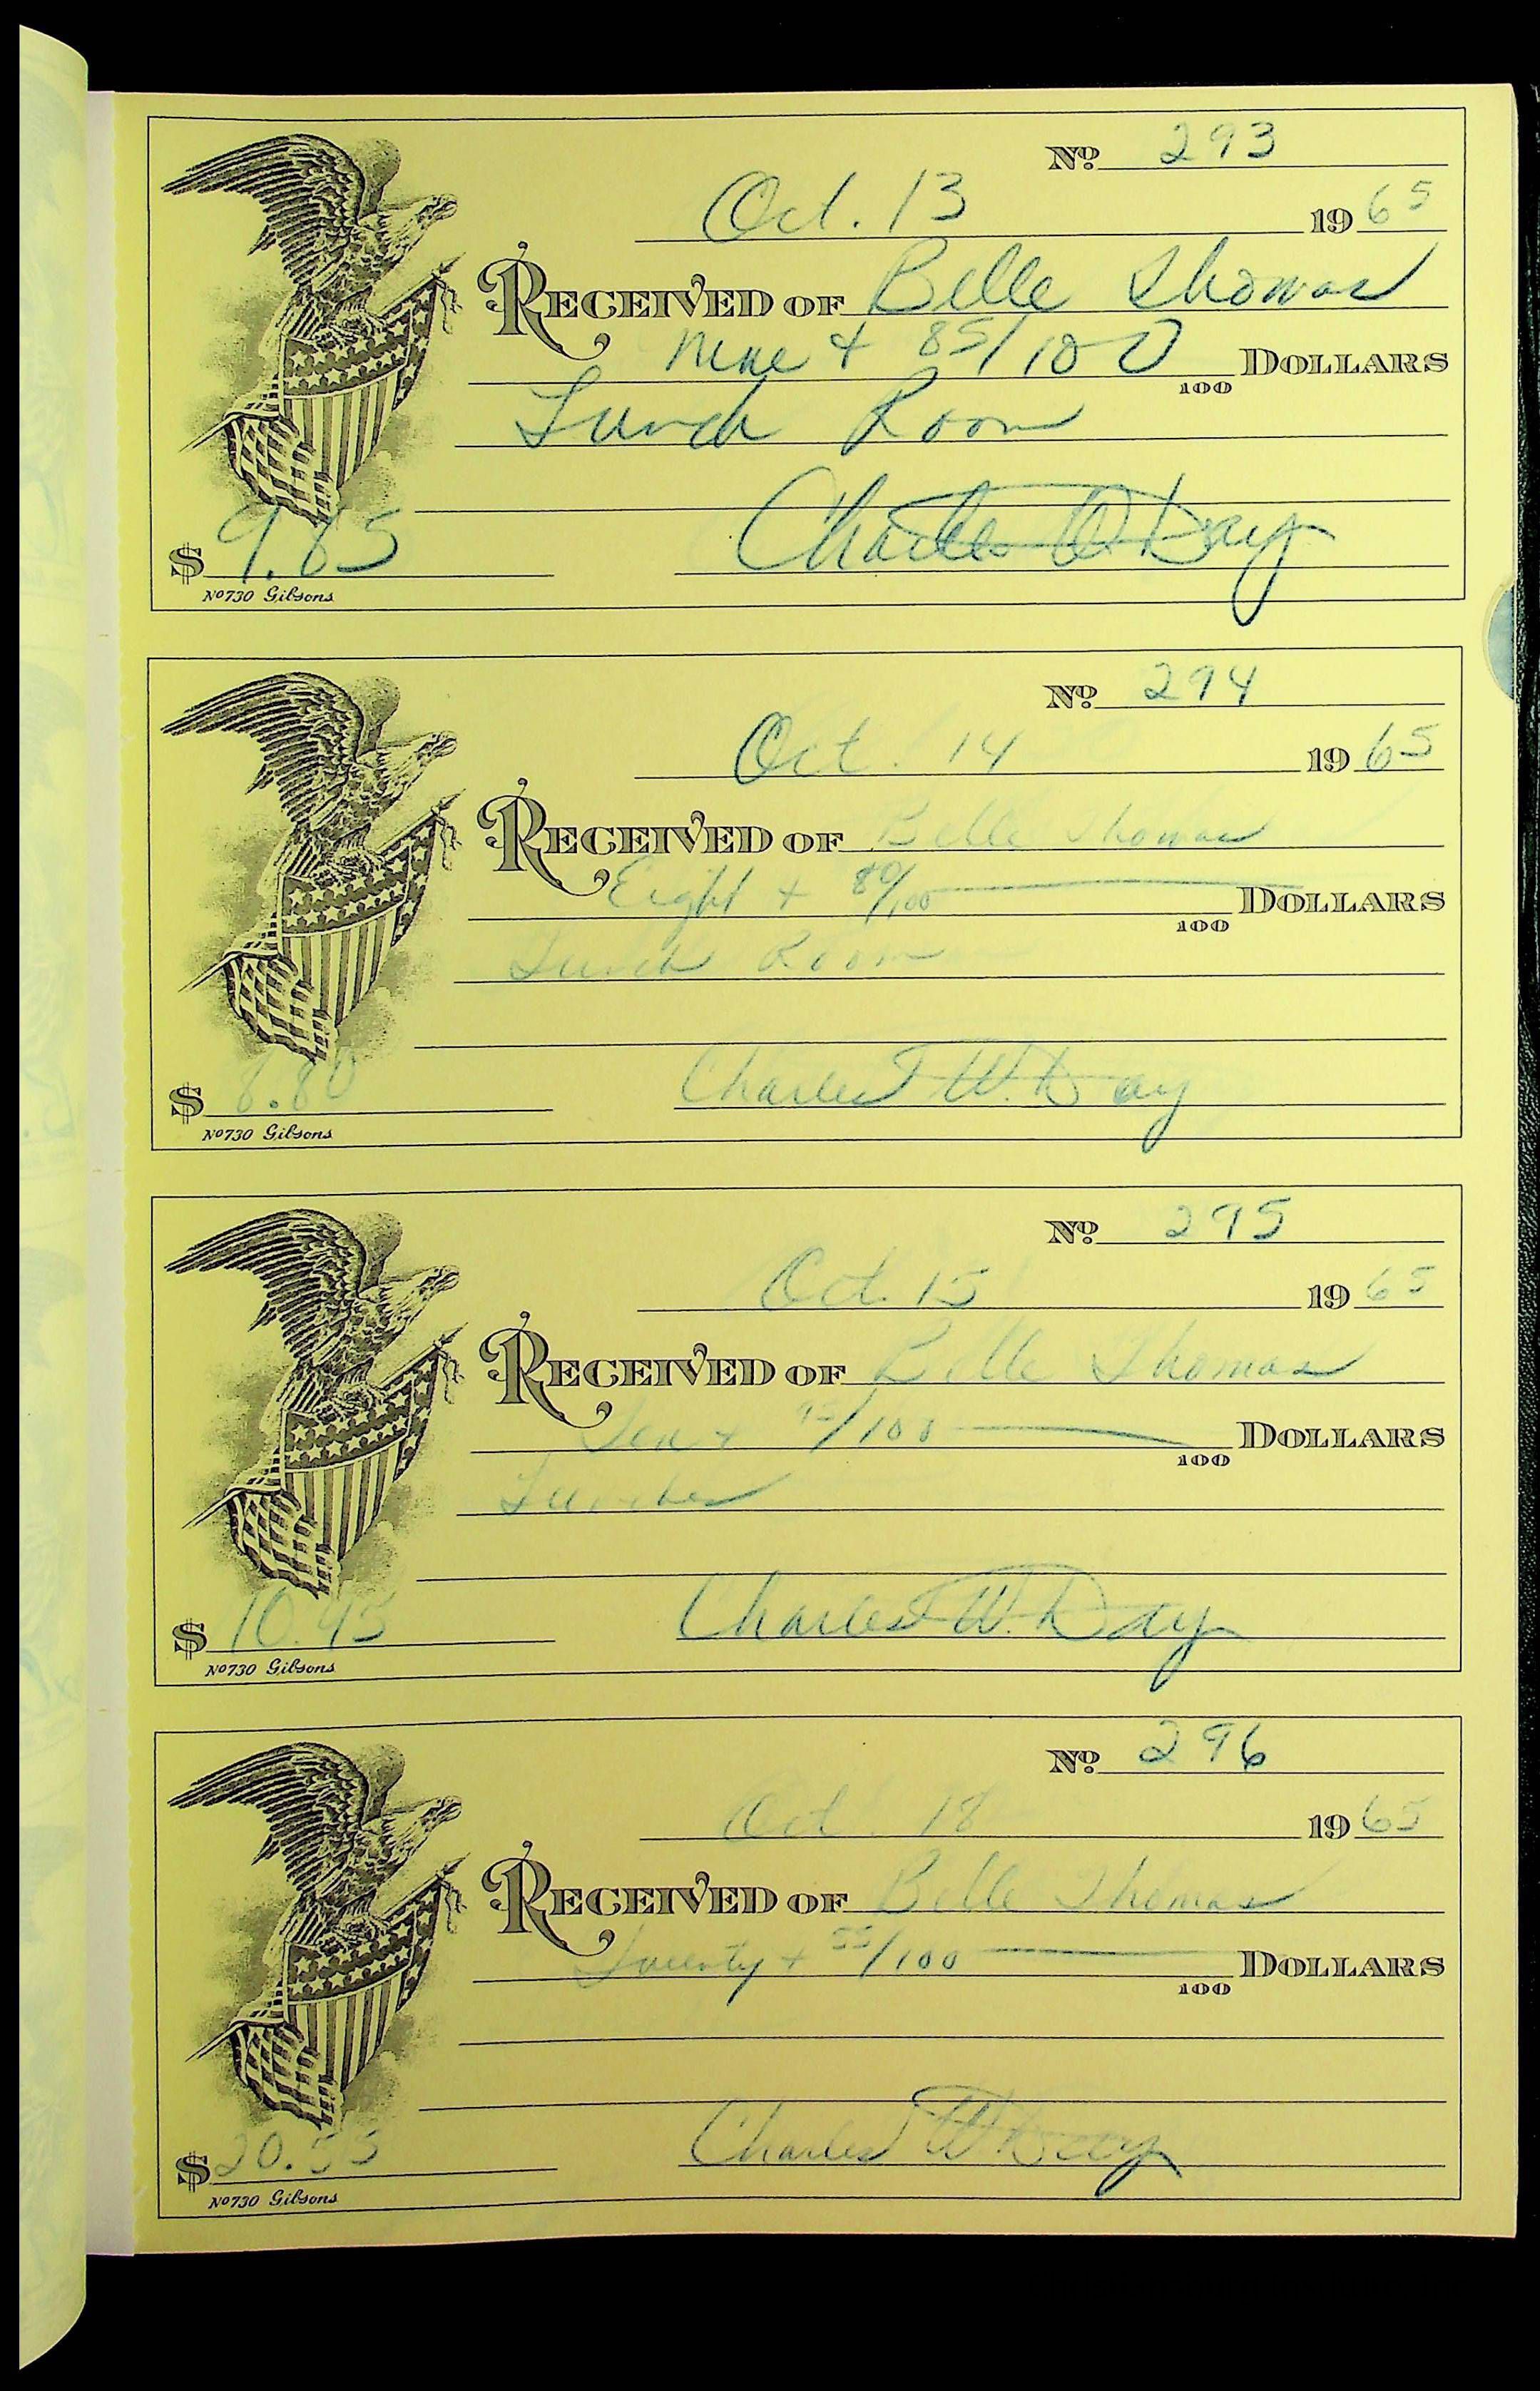 No. 293
Oct. 13 1965
RECEIVED OF Belle Thomas
Nine + 85/100 100 DOLLARS
Lunch Room
Charles W. Day
$ 9.85
No 730 Gibsons
No. 294
Oct. 14 1965
RECEIVED OF Belle Thomas
Eight + 80/100 100 DOLLARS
Lunch Room
Charles W. Day
$ 8.80
No 730 Gibsons
No. 295
Oct. 15 1965
RECEIVED OF Belle Thomas
Ten + /100 100 DOLLARS
Lunches
Charles W. Day
$
No 730 Gibsons
No. 296
Oct. 18 1965
RECEIVED OF Belle Thomas
Twenty + 55/100 100 DOLLARS
Charles W. Day
$ 20.55
No 730 Gibsons